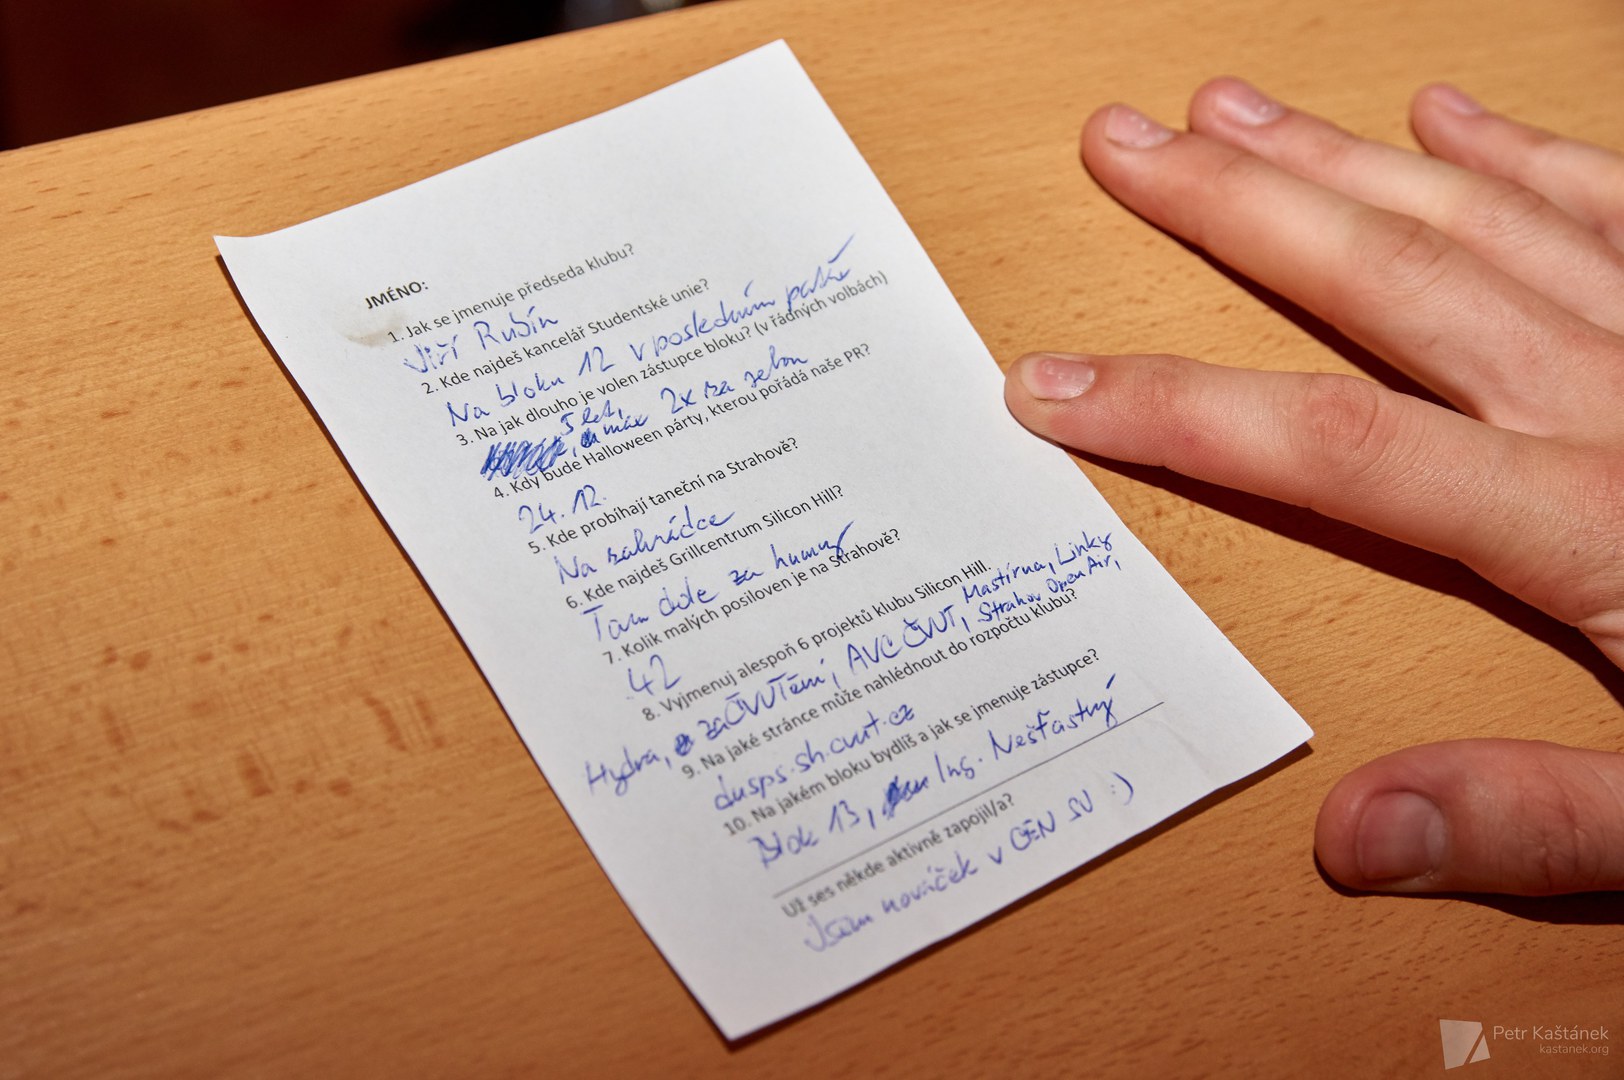 JMÉNO:
1. Jak se jmenuje předseda klubu?
Jiří Rubín
2. Kde najdeš kancelář Studentské unie?
Na bloku 12 v posledním patře
3. Na jak dlouho je volen zástupce bloku? (v řádných volbách)
5 let, max 2x za sebou
4. Kdy bude Halloween párty, kterou pořádá naše PR?
24. 12.
5. Kde probíhají taneční na Strahově?
Na zahrádce
6. Kde najdeš Grillcentrum Silicon Hill?
Tam dole za humny
7. Kolik malých posiloven je na Strahově?
42
8. Vyjmenuj alespoň 6 projektů klubu Silicon Hill.
Mastírna, Linky
Hydra, začVUTění, AVC ČVUT, Strahov OpenAir,
9. Na jaké stránce může nahlédnout do rozpočtu klubu?
dusps.sh.cvut.cz
10. Na jakém bloku bydlíš a jak se jmenuje zástupce?
Blok 13, Ing. Nešťastný
Už ses někde aktivně zapojil/a?
Jsem nováček v SU :)
Petr Kaštánek
kastanek.org